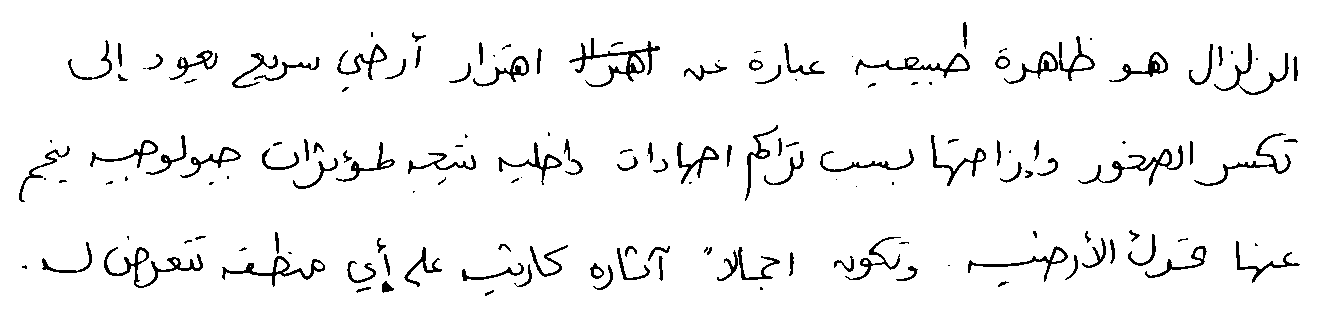 الزلزال هو ظاهرة طبيعيه عبارة عن اهتزاز أرضي سريع يعود إلى
تكسر الصخور وإزاحتها بسبب تراكم اجهادات داخليه نتيجه لمؤثرات جيولوجيه ينجم
عنها الأرضيه. وتكون اجمالاً آثاره كارثيه على أي منطقه تتعرض له.